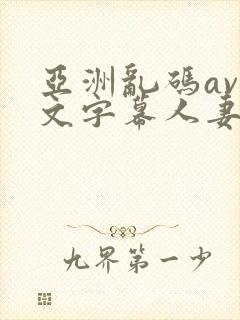 亞洲亂碼av
文字幕人妻
九界第一少